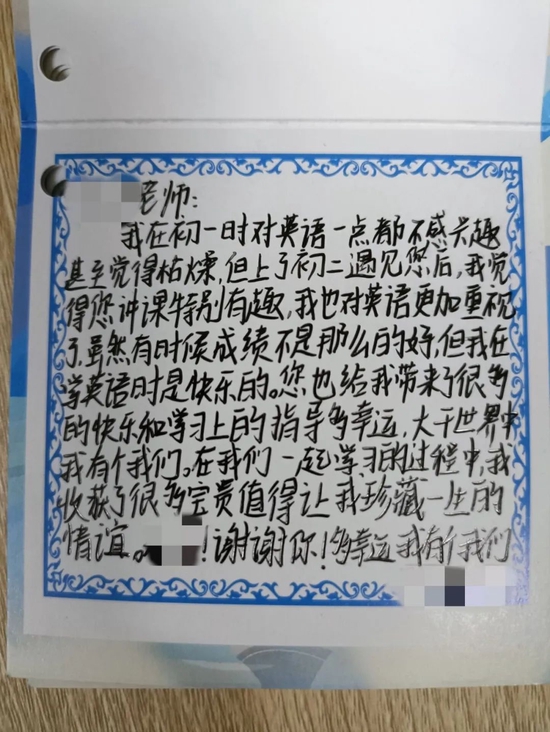 老师:
我在初一时对英语一点都不感兴趣
甚至觉得枯燥,但上了初二遇见您后,我觉
得您讲课特别有趣,我也对英语更加重视
了,虽然有时候成绩不是那么的好,但我在
学英语时是快乐的。您也给我带来了很多
的快乐和学习上的指导多幸运,大千世界中
我有个我们。在我们一起学习的过程中,我
收获了很多宝贵值得让我珍藏一生的
情谊。!谢谢你!多幸运我有个我们